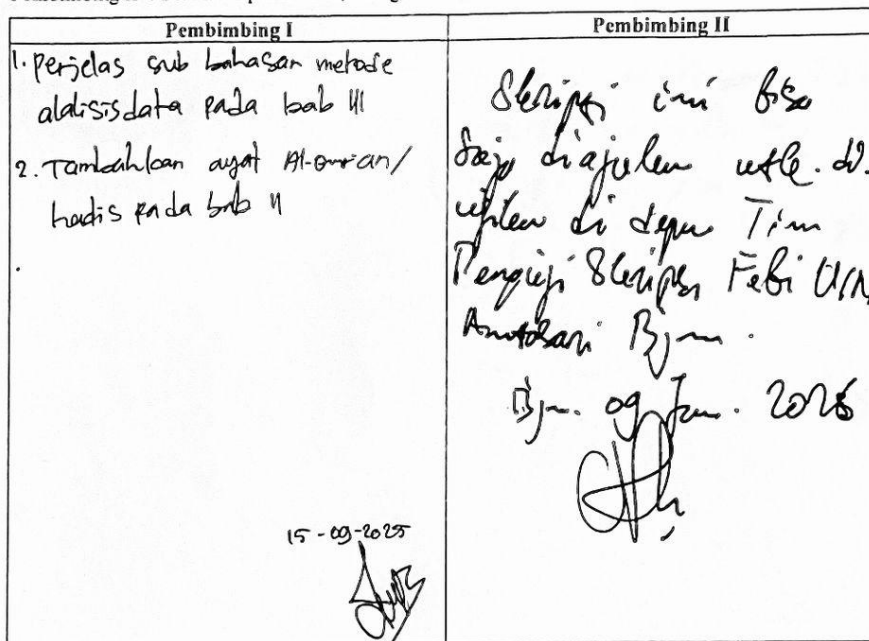 Pembimbing I
1. Perjelas sub bahasan metode
alalisis data pada bab III
2. Tambahkan ayat Al-qur'an/
hadis pada bab II
15-09-2025
Pembimbing II
Skripsi ini bisa
saja diajukan utk. di
ujikan di depan Tim
Penguji Skripsi Febi UIN
Antasari Bjm.
Bjm. 09 Jan. 2026